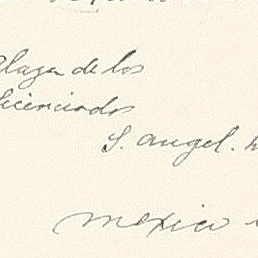 Plaza de los
Licenciados
S. Angel.
Mexico